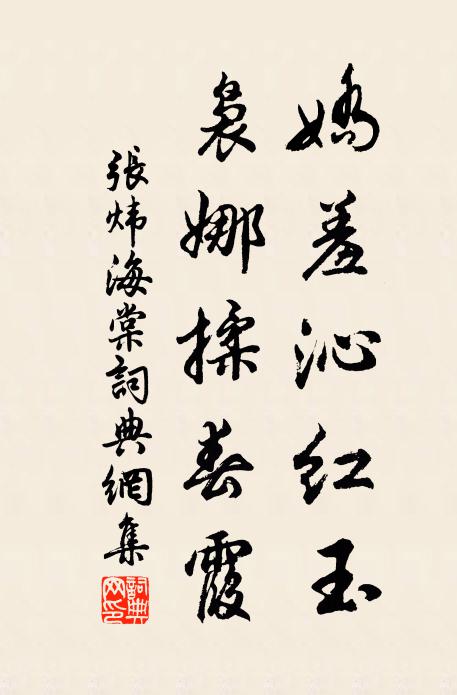 嬌羞沁紅玉
裊娜揉春霞
張煒海棠詞典網集
詞典
网印